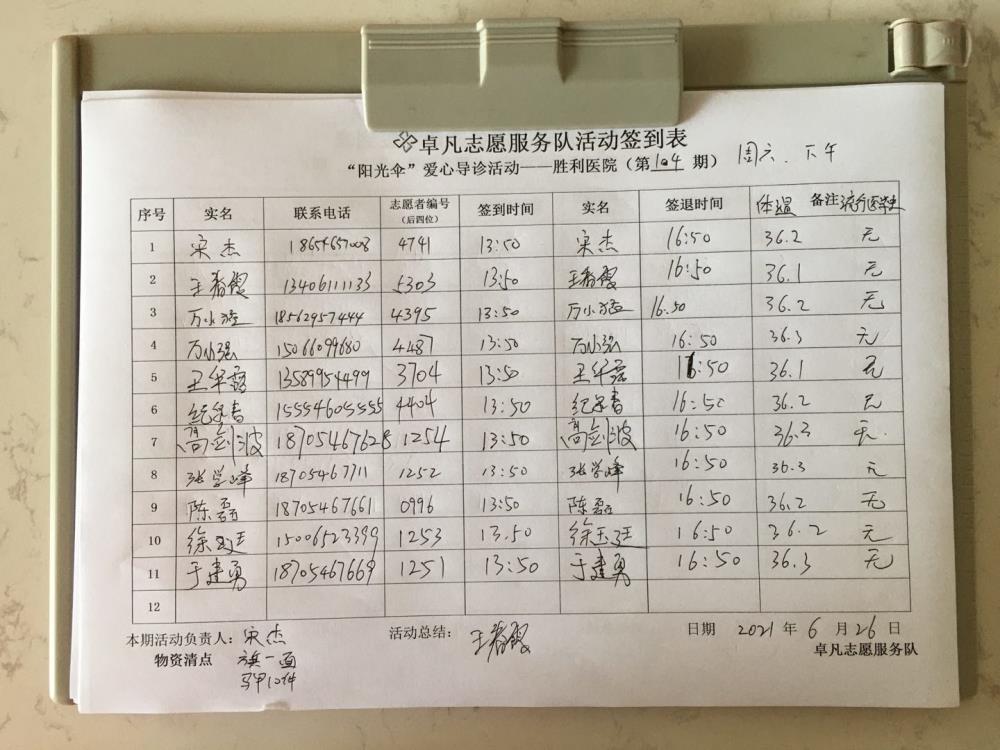 卓凡志愿服务队活动签到表
“阳光伞”爱心导诊活动——胜利医院（第104期） 周六.下午
序号 实名 联系电话 志愿者编号（后四位） 签到时间 实名 签退时间 体温 备注
1 宋杰 18654657008 4741 13:50 宋杰 16:50 36.2 无
2 王春霞 13406111133 5303 13:50 王春霞 16:50 36.1 无
3 万小 18562957444 4395 13:50 万小 16.50 36.2 无
4 万小强 15066099680 4487 13:50 万小强 16:50 36.3 无
5 王华磊 13589954499 3704 13:50 王华磊 16:50 36.1 无
6 纪 春 15554605555 4404 13:50 纪 春 16:50 36.2 无
7 高剑波 18705467628 1254 13:50 高剑波 16:50 36.3 无.
8 张学峰 18705467711 1252 13:50 张学峰 16:50 36.3 无
9 陈磊 18705467661 0996 13:50 陈磊 16:50 36.2 无
10 徐玉廷 15006523399 1253 13.50 徐玉廷 16:50 36.2 无
11 于建勇 18705467669 1251 13:50 于建勇 16:50 36.3 无
12
本期活动负责人：宋杰 活动总结：王春霞 日期 2021年6月26日
物资清点 旗一面 卓凡志愿服务队
马甲12件